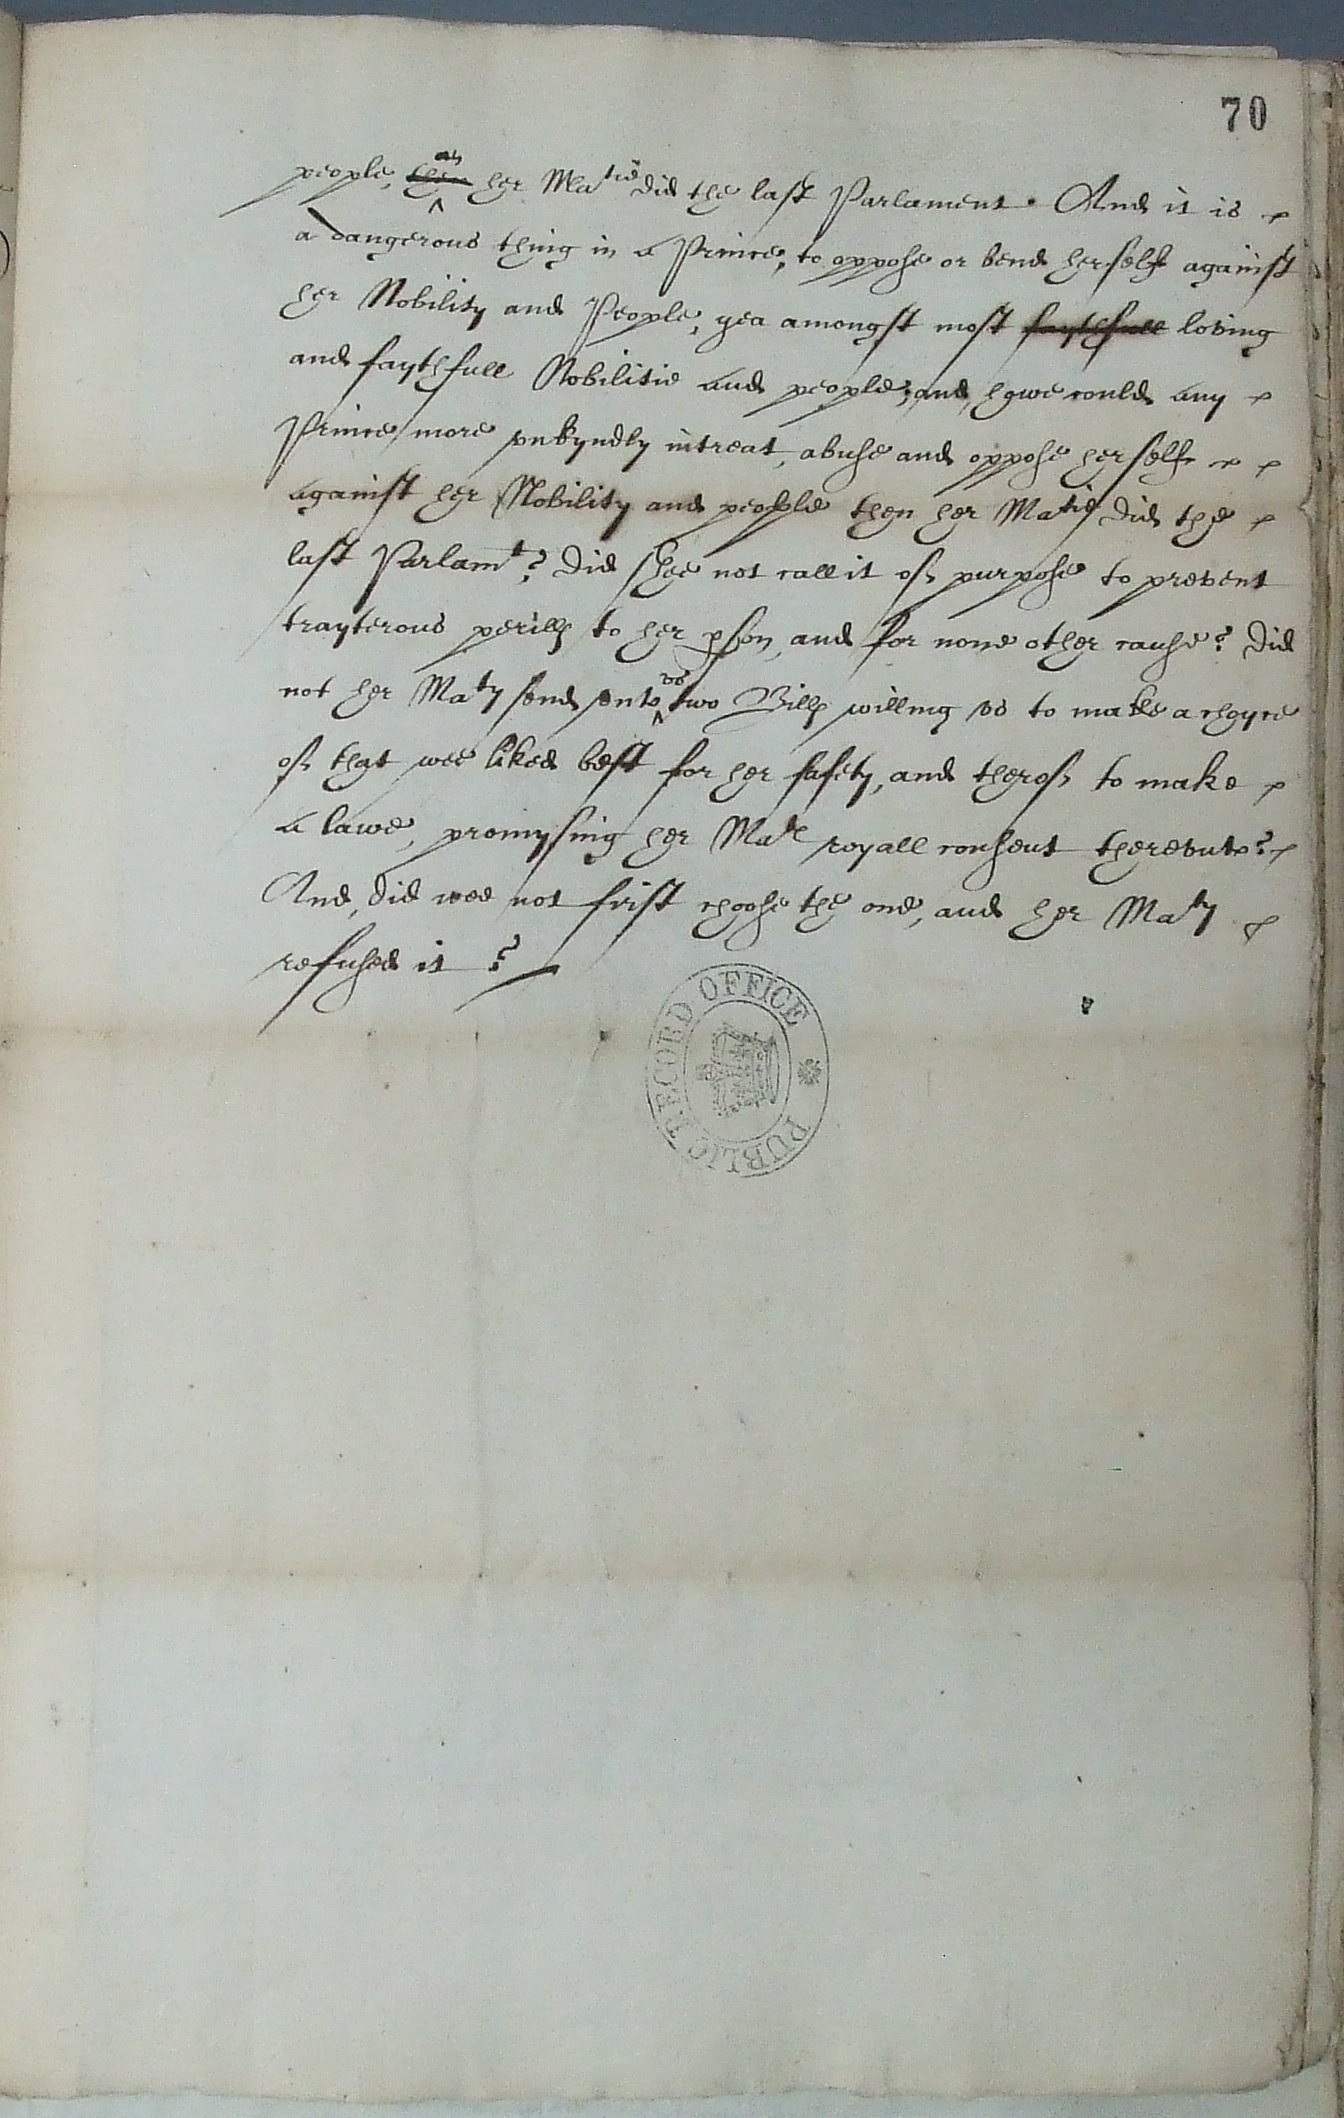 70
as
people, then her Matie did the last Parlament. And it is
a dangerous thing in a Prince, to oppose or bend herselfe against
her Nobility and People, yea amongst most faythfull loving
and faythfull Nobilitie and people; and, howe could any
Prince more vnkyndly intreat, abuse and oppose herselfe
against her Nobility and people then her Matie did the
last Parlamt? Did shee not call it of purpose to prevent
trayterous perills to her pson, and for none other cause? Did
vs
not her Maty send vnto ^ two Bills willing vs to make a choyce
of that wee liked best for her safety, and therof to make
a lawe, promysing her Mats royall consent therevnto?
And, did wee not first choose the one, and her Maty
refused it?
PUBLIC RECORD OFFICE